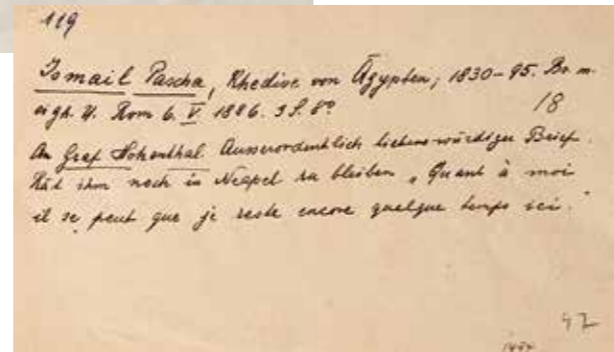 119
Ismail Pascha, Khedive von Ägypten; 1830-95. Br. m.
eigh. U. Rom 6. V. 1886. 3 S. 8°
18
An Graf Hohenthal. Ausserordentlich liebenswürdiger Brief.
Rät ihm noch in Neapel zu bleiben „Quant à moi
il se peut que je reste encore quelque temps ici."
47